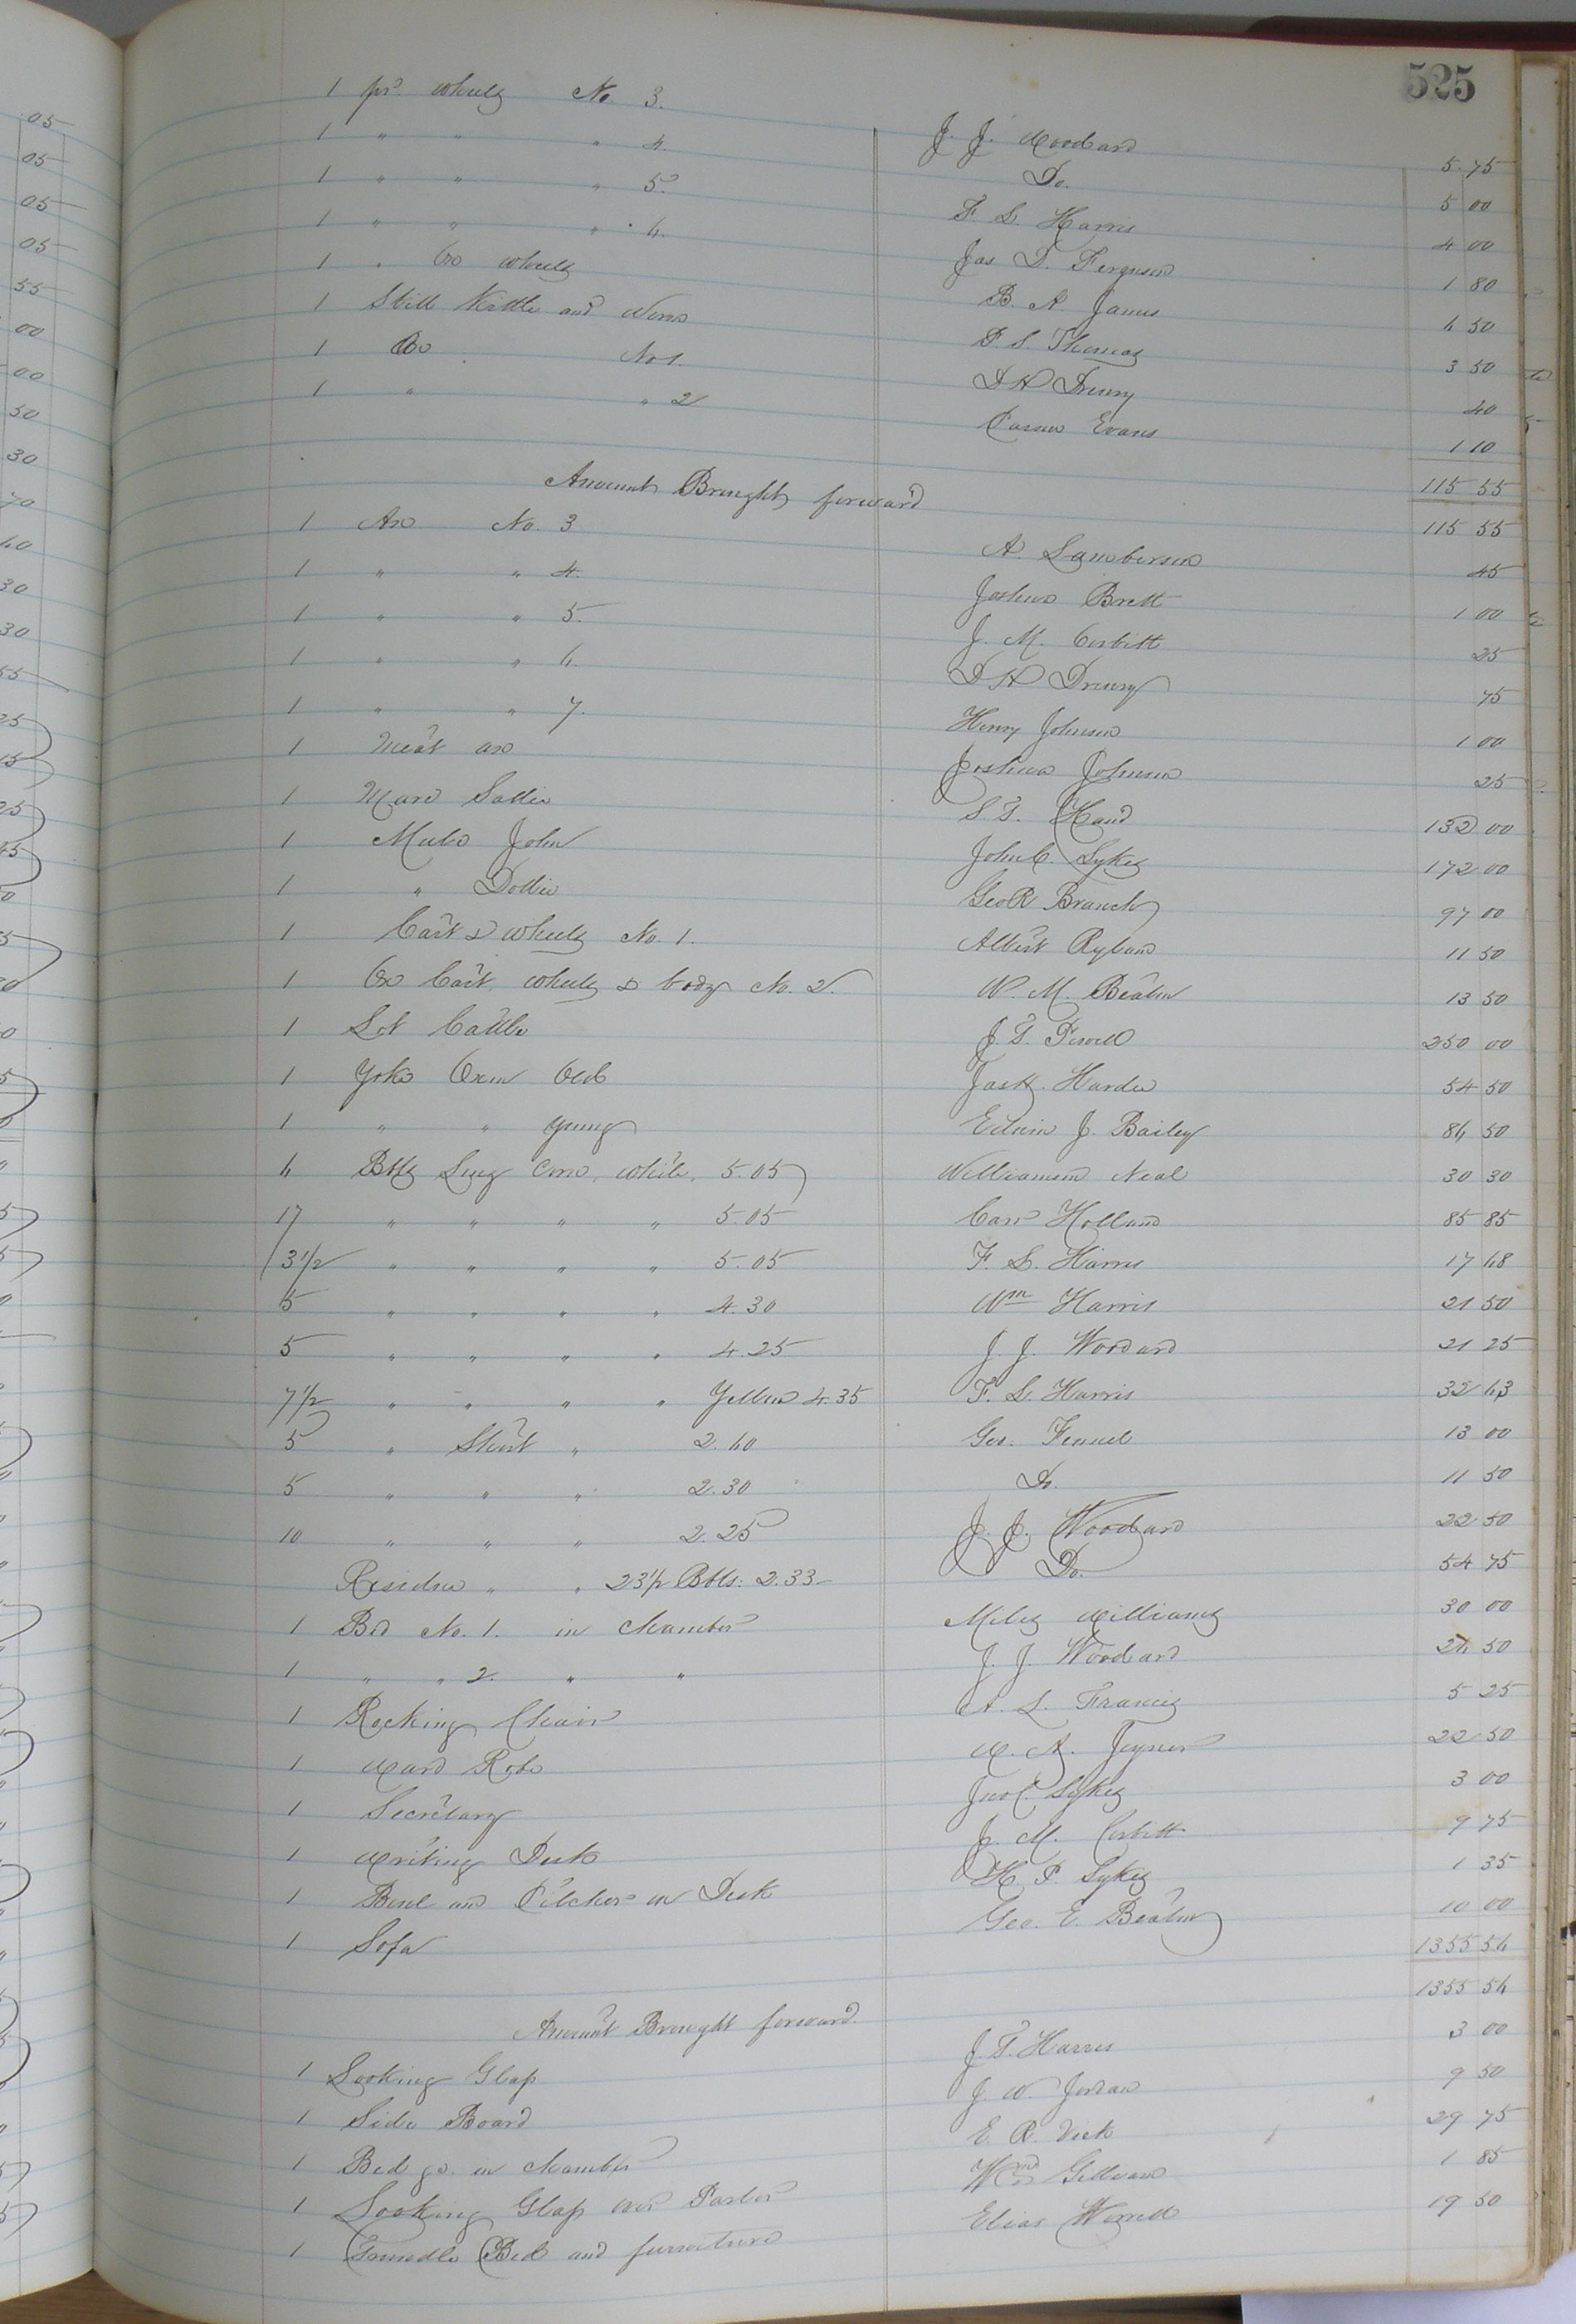 525
1 pr. wheels No 3. J. J. Woodard 5 75
1 " " " 4. Do. 5 00
1 " " " 5. F. S. Harris 4 00
1 " " " 6. Jas D. Ferguson 1 80
1 " Ox wheels B. A. James 6 50
1 Still Kettle and Worm P. S. Thomas 3 50
1 Axe No 1. D H Drewry 40
1 " " 2 Evans 1 10
115 55
Amount Brought forward 115 55
1 Axe No. 3 A. Lamberson 45
1 " " 4. Joshua Brett 1 00
1 " " 5. J. M. Corbitt 25
1 " " 6. D H Drewry 75
1 " " 7. Henry Johnson 1 00
1 Meat axe Joshua Johnson 25
1 Mare Sallie S T. Hand 132 00
1 Mule John John C. Sykes 172 00
1 " Dollie Geo R Branch 97 00
1 Cart & wheels No. 1. Albert Ryland 11 50
1 Ox Cart, wheels & body No. 2. W. M. Beaton 13 50
1 Lot Cattle J. T. 250 00
1 Yoke Oxen Old Jas H. Hardee 54 50
1 " " young Edwin J. Bailey 86 50
6 Bbls Long Corn, white, 5.05 Williamson Neal 30 30
17 " " " " 5.05 Carr Holland 85 85
3 1/2 " " " " 5.05 F. S. Harris 17 68
5 " " " " 4.30 Wm Harris 21 50
5 " " " " 4.25 J. J. Woodard 21 25
7 1/2 " " " " Yellow 4.35 F. S. Harris 32 63
5 " Short " 2.60 Geo. Fennel 13 00
5 " " " 2.30 Do. 11 50
10 " " " 2.25 J. J. Woodard 22 50
Residue " " 23 1/2 Bbls. 2.33 Do. 54 75
1 Bed No. 1. in Chamber Miles Williams 30 00
1 " " 2. " " J. J. Woodard 26 50
1 Rocking Chair A. L. Francis 5 25
1 Ward Robe W. A. Joyner 22 50
1 Secretary Jno C. Sykes 3 00
1 Writing Desk J. M. Corbitt 9 75
1 Bowl and Pitcher on Desk H. P. Sykes 1 35
1 Sofa Geo. E. Beaton 10 00
1355 56
Amount Brought forward. 1355 56
1 Looking Glass J. T. Harris 3 00
1 Side Board J. W. Jordan 9 50
1 Bed &c. in chamber E. R. Vick 29 75
1 Looking Glass over Parlor Wm 1 85
1 Trundle Bed and furniture Elias Worrell 19 50